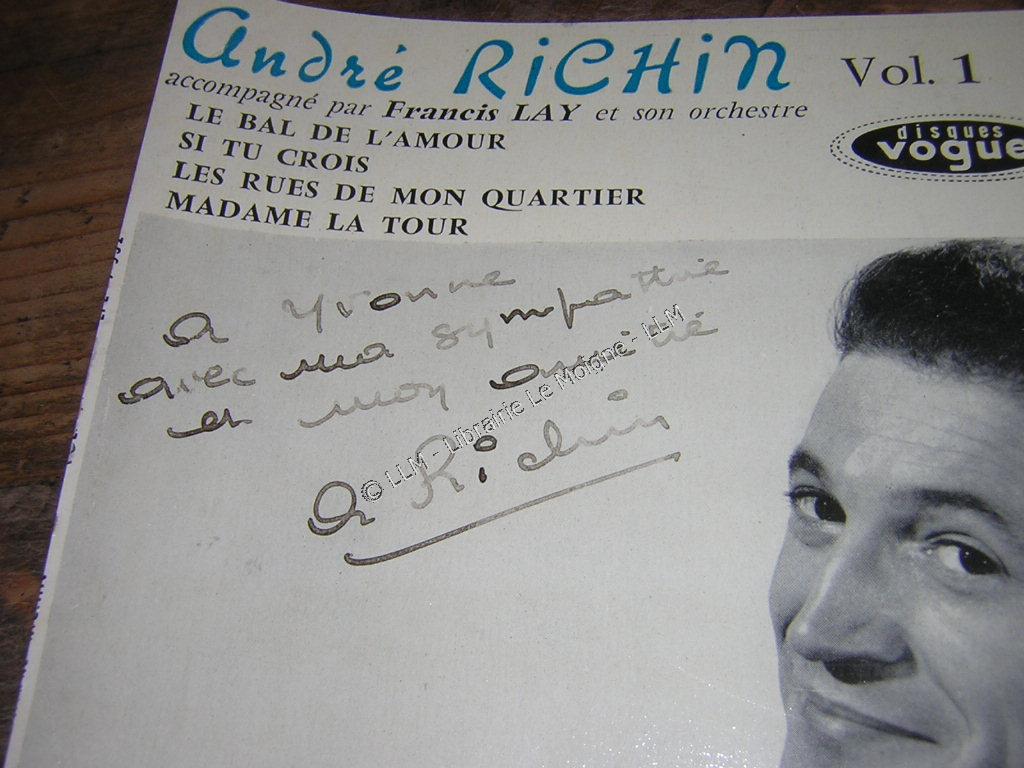 André RiCHiN
Vol. 1
accompagné par Francis LAY et son orchestre
LE BAL DE L'AMOUR
SI TU CROIS
LES RUES DE MON QUARTIER
MADAME LA TOUR
disques
vogue
a Yvonne
avec ma sympathie
et mon amitié
A Richin
© LLM - Librairie Le Moigne - LLM